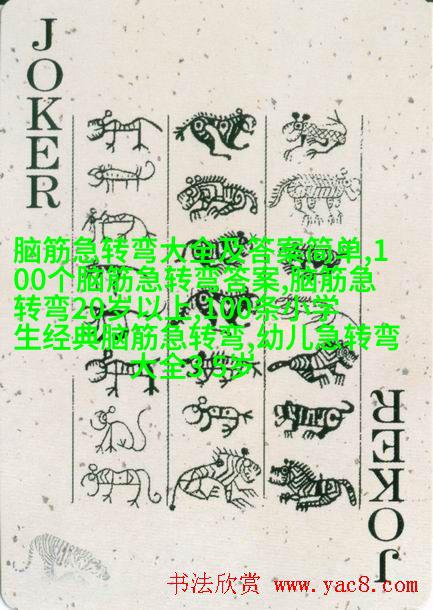 JOKER
脑筋急转弯大全及答案简单,1
00个脑筋急转弯答案,脑筋急
转弯20岁以上,100条小学
生经典脑筋急转弯,幼儿急转弯
大全3-5岁
JOKER
书法欣赏 www.yac8.com